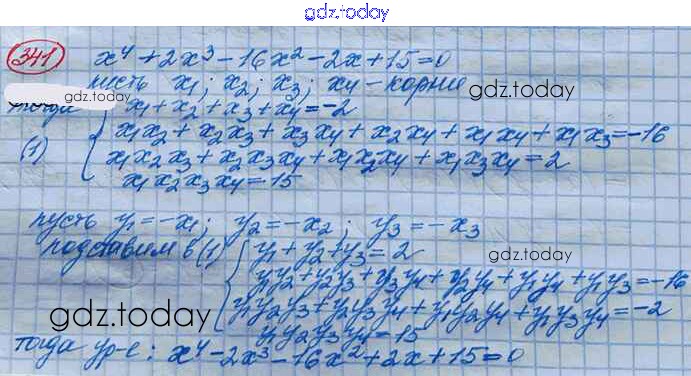 gdz.today
341 x⁴ + 2x³ - 16x² - 2x + 15 = 0
пусть x₁; x₂; x₃; x₄ - корни
gdz.today
gdz.today
тогда x₁ + x₂ + x₃ + x₄ = -2
(1) x₁x₂ + x₂x₃ + x₃x₄ + x₂x₄ + x₁x₄ + x₁x₃ = -16
x₁x₂x₃ + x₂x₃x₄ + x₁x₂x₄ + x₁x₃x₄ = 2
x₁x₂x₃x₄ = 15
пусть y₁ = -x₁; y₂ = -x₂; y₃ = -x₃
подставим в (1) y₁ + y₂ + y₃ = 2
y₁y₂ + y₂y₃ + y₃y₄ + y₂y₄ + y₁y₄ + y₁y₃ = -16
gdz.today
y₁y₂y₃ + y₂y₃y₄ + y₁y₂y₄ + y₁y₃y₄ = -2
y₁y₂y₃y₄ = 15
gdz.today
тогда ур-е: x⁴ - 2x³ - 16x² + 2x + 15 = 0